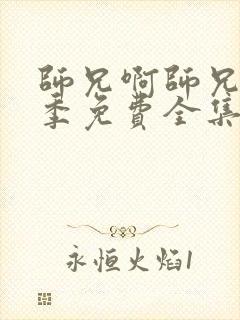 師兄啊師兄
季免費全集
永恒火焰1